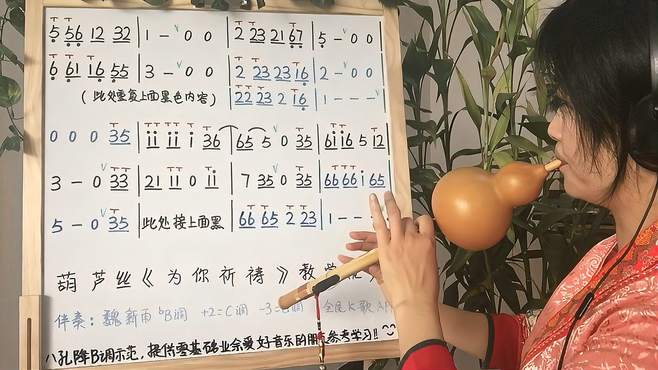 5 56 12 32 | 1 - 0 0 | 2 23 21 67 | 5 - 0 0
6 61 16 55 | 3 - 0 0 | 2 23 23 16 | 2 - 0 0
(此处重复上面黑色内容) 22 23 2 16 | 1 - - -
0 0 0 35 | ii ii i 36 | 65 5 0 35 | 6i i6 5 12
3 - 0 33 | 21 11 0 11 | 7 35 0 35 | 66 66 i 65
5 - 0 35 | 此处接上面黑 | 66 65 2 23 | 1 - -
葫芦丝《为你祈祷》教学
伴奏：魏新雨 bB调 +2=C调 -3= 调 全民K歌
八孔降B调示范，提供零基础业余爱好音乐的朋友参考学习!!